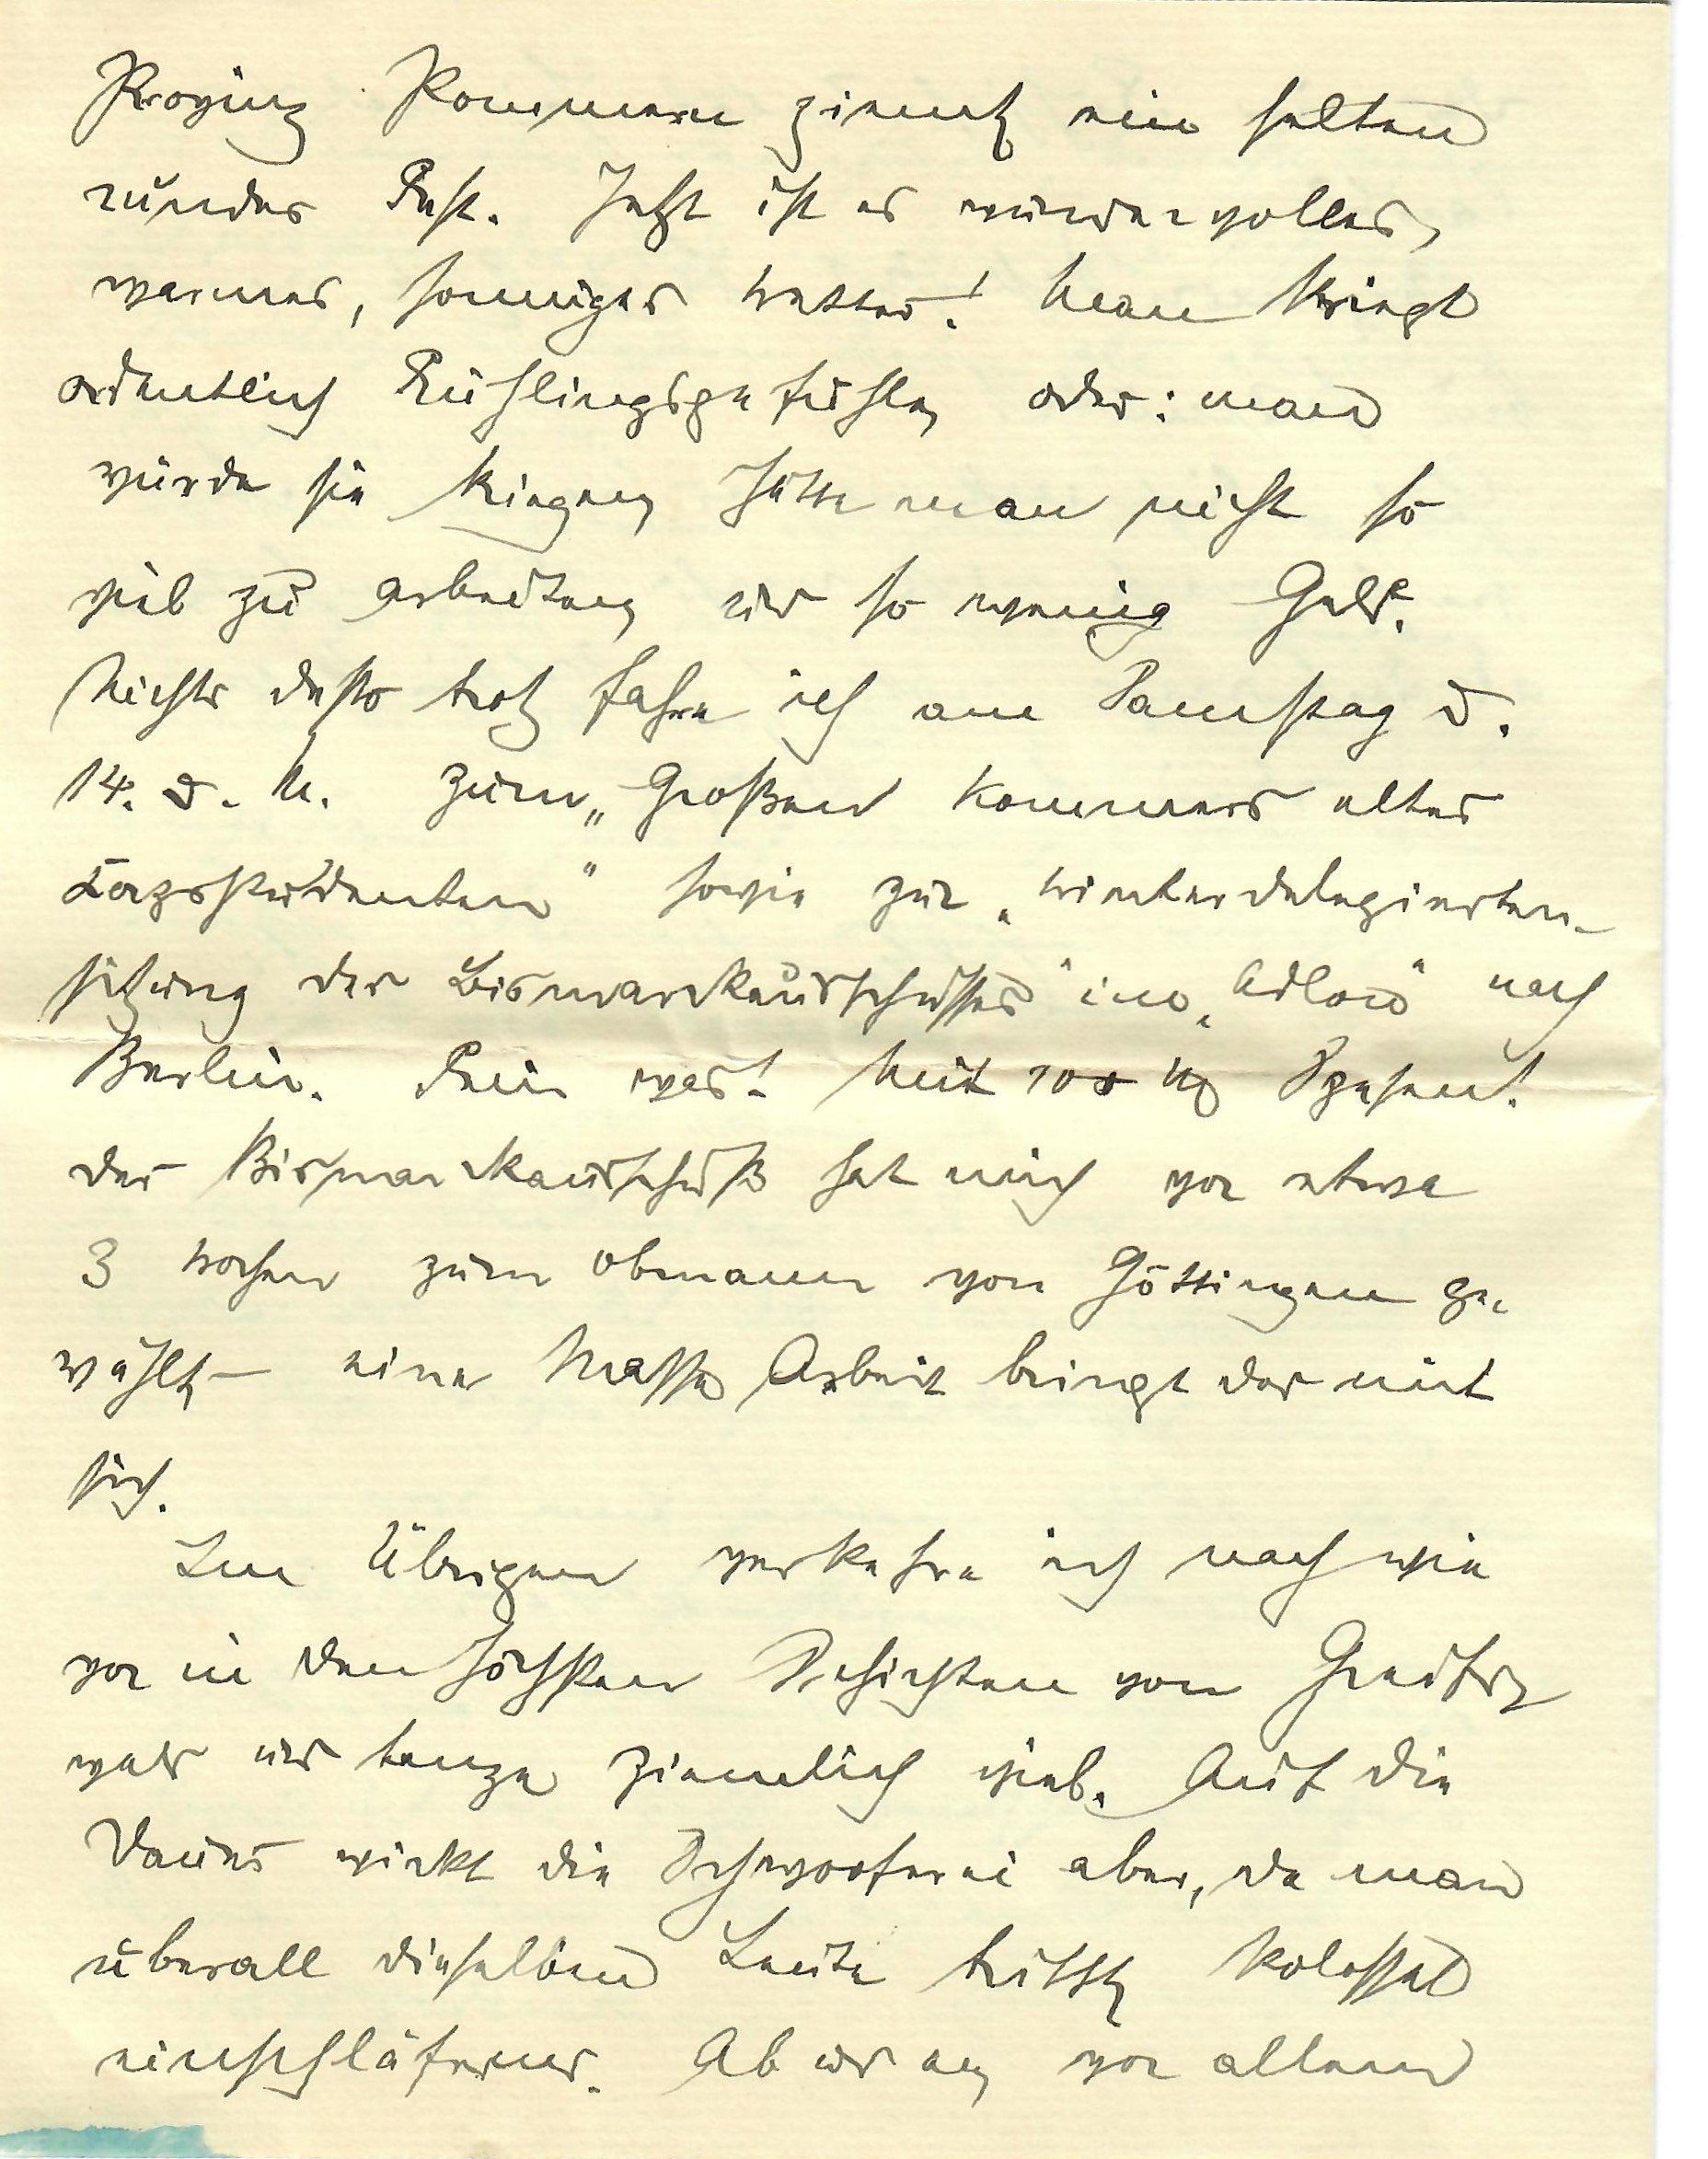 Provinz Pommern ziemt, ein selten
rundes Fest. Jetzt ist es wundervolles,
warmes, sonniges Wetter! Man kriegt
ordentlich Frühlingsgefühle, oder: man
würde sie kriegen, hätte man nicht so
viel zu arbeiten, und so wenig Geld.
Nichts desto trotz fahre ich am Samstag d.
14. d. M. zum „Großen Kommers alter
Corpsstudenten" sowie zur „Winterdelegierten-
sitzung des Bismarckausschusses" im „Adlon" nach
Berlin. Fein was? Mit 100 M Spesen!
Der Bismarckausschuß hat mich vor etwa
3 Wochen zum Obmann von Göttingen ge-
wählt, – eine Masse Arbeit bringt das mit
sich.
Im Übrigen verkehre ich nach wie
vor in den höchsten Schichten von Greifs-
wald und tanze ziemlich viel. Auf die
Dauer wirkt die Schwooferei aber, da man
überall dieselben Leute trifft, kolossal
einschläfernd. Ab und an, vor allem